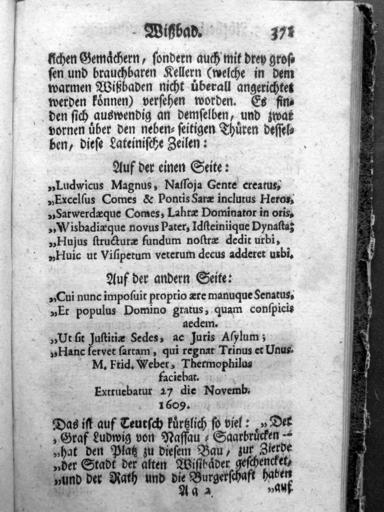 Wißbad. 371
lichen Gemächern, sondern auch mit drey gros-
sen und brauchbaren Kellern (welche in dem
warmen Wißbaden nicht überall angerichtet
werden können) versehen worden. Es fin-
den sich auswendig an demselben, und zwar
vornen über den neben-seitigen Thüren dessel-
ben, diese Lateinische Zeilen:
Auf der einen Seite:
„Ludwicus Magnus, Nassoja Gente creatus,
„Excelsus Comes & Pontis Saræ inclutus Heros,
„Sarwerdæque Comes, Lahræ Dominator in oris,
„Wisbadiæque novus Pater, Idsteiniique Dynasta;
„Hujus structuræ fundum nostræ dedit urbi,
„Huic ut Visipetum veterum decus adderet urbi.
Auf der andern Seite:
„Cui nunc imposuit proprio ære manuque Senatus,
„Et populus Domino gratus, quam conspicis
aedem.
„Ut sit Justitiæ Sedes, ac Juris Asylum;
„Hanc servet sartam, qui regnat Trinus et Unus.
M. Frid. Weber, Thermophilus
faciebat.
Extruebatur 27 die Novemb.
1609.
Das ist auf Teutsch kürtzlich so viel: „Der
„Graf Ludwig von Nassau-Saarbrücken
„hat den Platz zu diesem Bau, zur Zierde
„der Stadt der alten Wißbäder geschencket,
„und der Rath und die Burgerschaft haben
A a 2 „auf